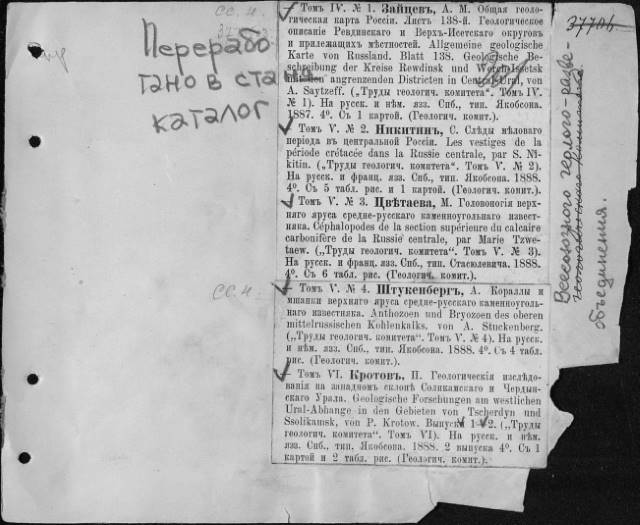 СС. И.
37706
Перерабо
тано в ста
каталог
Томъ IV. № 1. Зайцевъ, А. М. Общая геоло-
гическая карта Россіи. Листъ 138-й. Геологическое
описаніе Ревдинскаго и Верхъ-Исетскаго округовъ
и прилежащихъ мѣстностей. Allgemeine geologische
Karte von Russland. Blatt 138. Geologische Be-
schreibung der Kreise Rewdinsk und Werch-Issetsk
angrenzenden Districten in Central-Ural, von
A. Saytzeff. („Труды геологич. комитета“. Томъ IV.
№ 1). На русск. и нѣм. язз. Спб., тип. Якобсона.
1887. 4⁰. Съ 1 картой. (Геологич. комит.).
Томъ V. № 2. Никитинъ, С. Слѣды мѣловаго
періода въ центральной Россіи. Les vestiges de la
période crétacée dans la Russie centrale, par S. Ni-
kitin. („Труды геологич. комитета“. Томъ V. № 2).
На русск. и франц. язз. Спб., тип. Якобсона. 1888.
4⁰. Съ 5 табл. рис. и 1 картой. (Геологич. комит.).
Томъ V. № 3. Цвѣтаева, М. Головоногія верх-
няго яруса средне-русскаго каменноугольнаго извест-
няка. Céphalopodes de la section supérieure du calcaire
carbonifère de la Russie centrale, par Marie Tzwe-
taew. („Труды геологич. комитета“. Томъ V. № 3).
На русск. и франц. язз. Спб., тип. Стасюлевича. 1888.
4⁰. Съ 6 табл. рис. (Геологич. комит.).
СС. И
Томъ V. № 4. Штукенбергъ, А. Кораллы и
мшанки верхняго яруса средне-русскаго каменноуголь-
наго известняка. Anthozoen und Bryozoen des oberen
mittelrussischen Kohlenkalks, von A. Stuckenberg.
(„Труды геологич. комитета“. Томъ V. № 4). На русск.
и нѣм. язз. Спб., тип. Якобсона. 1888. 4⁰. Съ 4 табл.
рис. (Геологич. комит.).
Томъ VI. Кротовъ, П. Геологическія изслѣдо-
ванія на западномъ склонѣ Соликамскаго и Чердын-
скаго Урала. Geologische Forschungen am westlichen
Ural-Abhange in den Gebieten von Tscherdyn und
Ssolikamsk, von P. Krotow. Выпуск 1—2. („Труды
геологич. комитета“. Томъ VI). На русск. и нѣм.
язз. Спб., тип. Якобсона. 1888. 2 выпуска 4⁰. Съ 1
картой и 2 табл. рис. (Геологич. комит.).
Всесоюзного геолого-разве-
объединения.